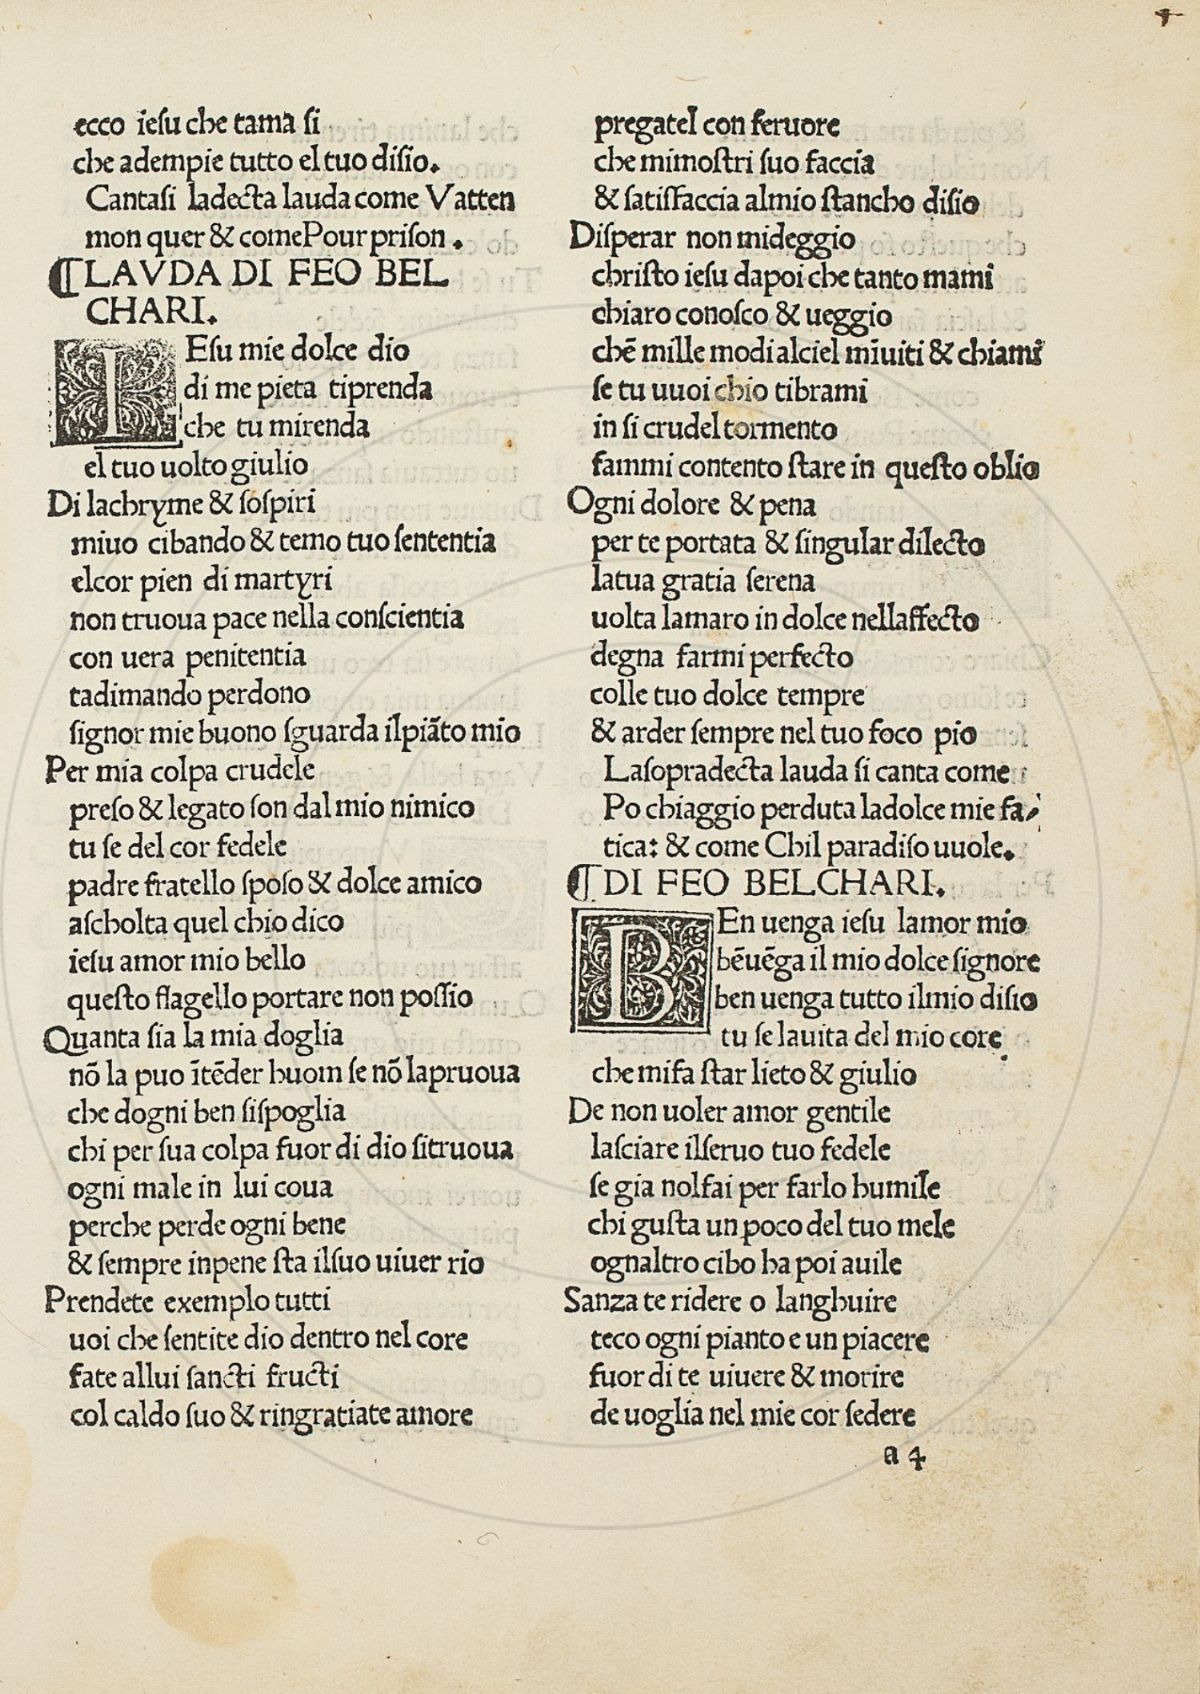 4
ecco iesu che tama si
che adempie tutto el tuo disio.
Cantasi ladecta lauda come Vatten
mon quer & comePour prison .
¶LAVDA DI FEO BEL
CHARI.
IEsu mie dolce dio
di me pieta tiprenda
che tu mirenda
el tuo uolto giulio
Di lachryme & sospiri
miuo cibando & temo tuo sententia
elcor pien di martyri
non truoua pace nella conscientia
con uera penitentia
tadimando perdono
signor mie buono sguarda ilpiāto mio
Per mia colpa crudele
preso & legato son dal mio nimico
tu se del cor fedele
padre fratello sposo & dolce amico
ascholta quel chio dico
iesu amor mio bello
questo flagello portare non possio
Quanta sia la mia doglia
nō la puo ītēder huom se nō lapruoua
che dogni ben sispoglia
chi per sua colpa fuor di dio sitruoua
ogni male in lui coua
perche perde ogni bene
& sempre inpene sta ilsuo uiuer rio
Prendete exemplo tutti
uoi che sentite dio dentro nel core
fate allui sancti fructi
col caldo suo & ringratiate amore
pregatel con feruore
che mimostri suo faccia
& satisfaccia almio stancho disio
Disperar non mideggio
christo iesu dapoi che tanto mami
chiaro conosco & ueggio
chē mille modi alciel mīuiti & chiami
se tu uuoi chio tibrami
in si crudel tormento
fammi contento stare in questo oblio
Ogni dolore & pena
per te portata & singular dilecto
latua gratia serena
uolta lamaro in dolce nellaffecto
degna farmi perfecto
colle tuo dolce tempre
& arder sempre nel tuo foco pio
Lasopradecta lauda si canta come
Po chiaggio perduta ladolce mie fa/
tica: & come Chil paradiso uuole.
¶ DI FEO BELCHARI.
BEn uenga iesu lamor mio
bēuēga il mio dolce signore
ben uenga tutto ilmio disio
tu se lauita del mio core
che mifa star lieto & giulio
De non uoler amor gentile
lasciare ilseruo tuo fedele
se gia nolfai per farlo humile
chi gusta un poco del tuo mele
ognaltro cibo ha poi auile
Sanza te ridere o langhuire
teco ogni pianto e un piacere
fuor di te uiuere & morire
de uoglia nel mie cor sedere
a 4